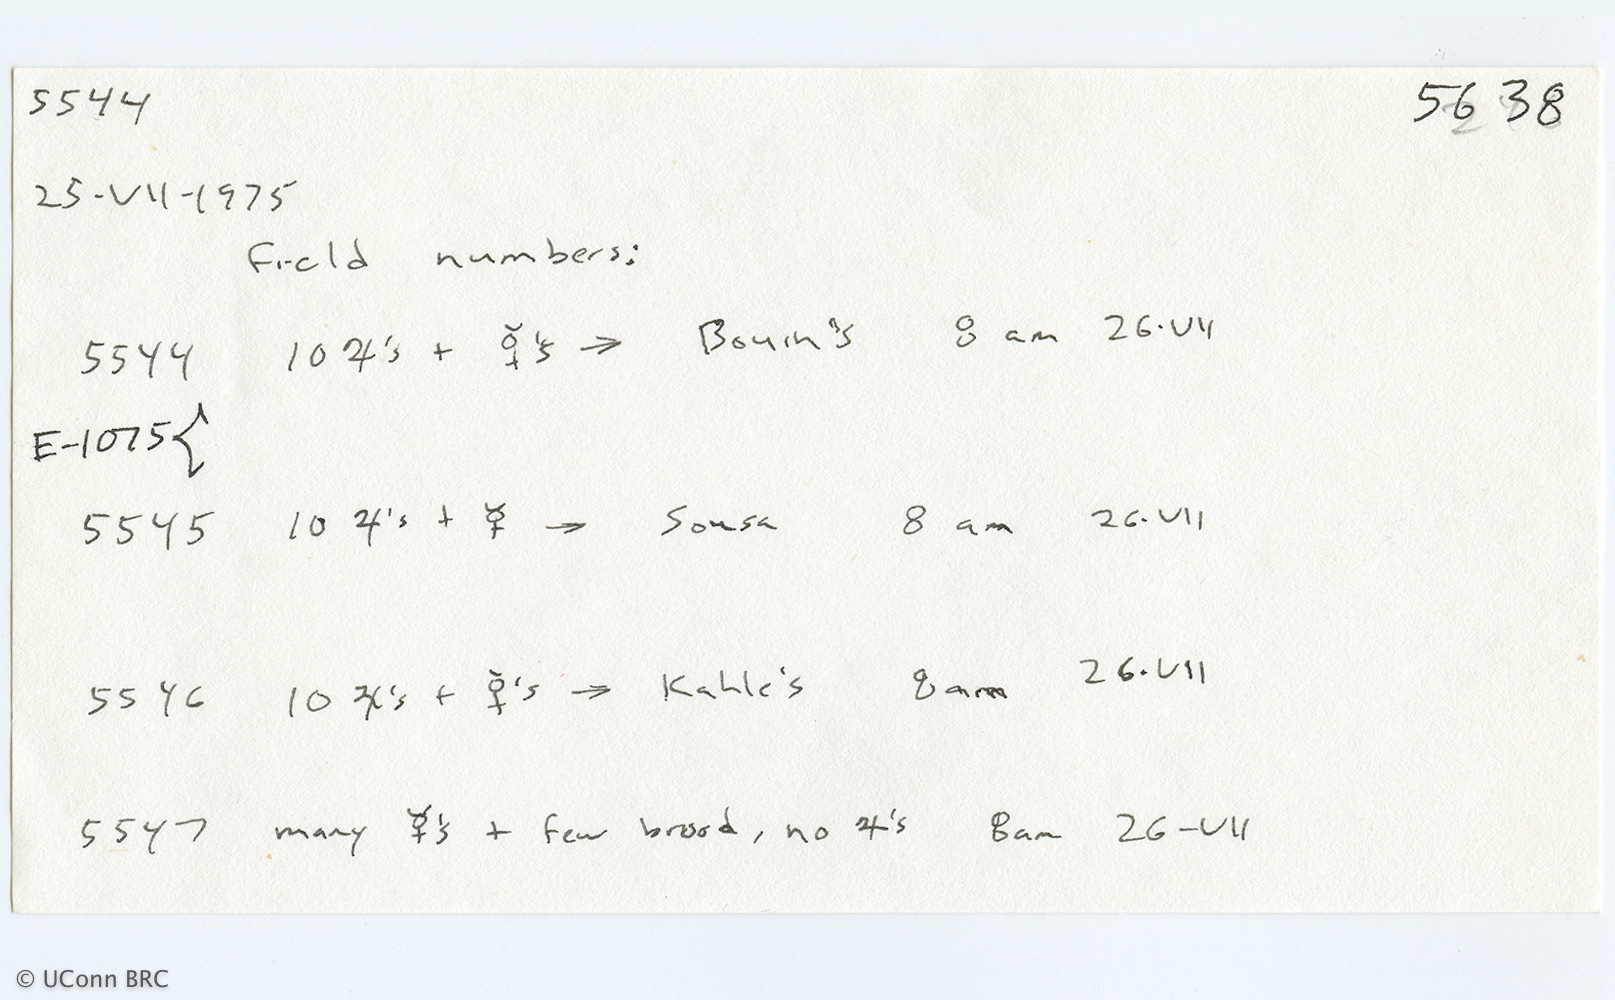 5544 5638
25-VII-1975
Field numbers:
5544 10 ♃'s + ☿'s → Bouin's 8 am 26.VII
E-1075{
5545 10 ♃'s + ☿ → Sousa 8 am 26.VII
5546 10 ♃'s + ☿'s → Kahle's 8 am 26.VII
5547 many ☿'s + few brood, no ♃'s 8am 26-VII
© UConn BRC